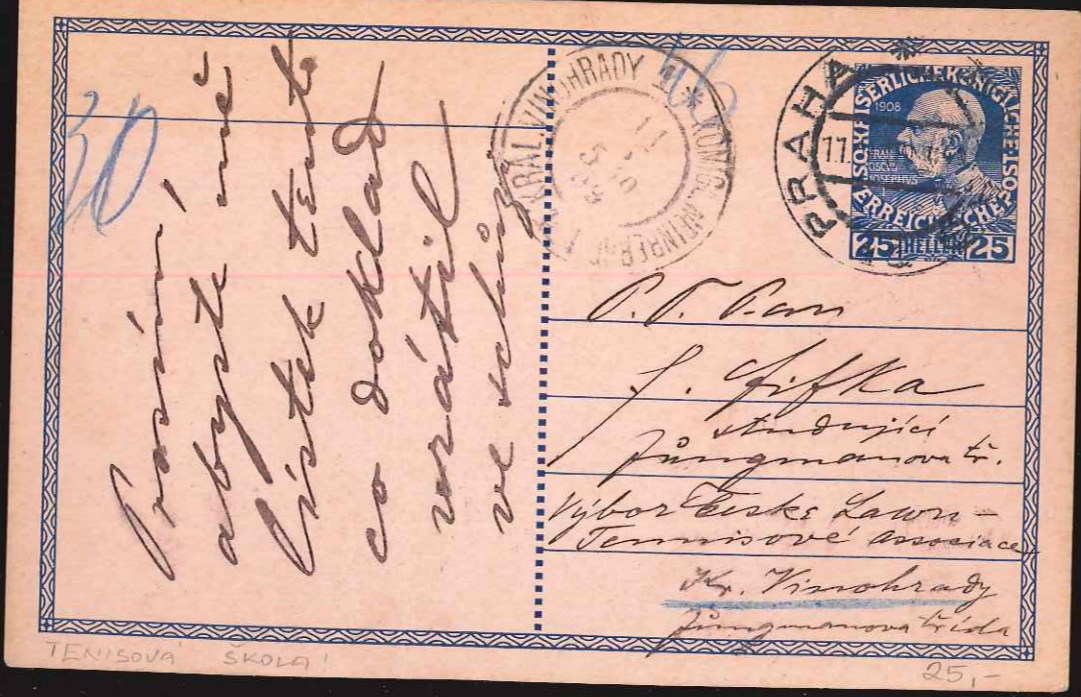 30
46
Prosím
abyste mě
lístek tento
co doklad
vrátil
ve schůzi
KRÁL. VINOHRADY 1 * KÖNIGL. WEINBERGE 1
11
PRAHA
11.
1908
KAISERLICHE KÖNIGLICHE
ÖSTERREICHISCHE POST
25 HELLER 25
P. T. Pan
J. Žifka
studující
Jungmanova tř.
Výbor České Lawn-
Tennisové Associace
Kr. Vinohrady
Jungmanova třída
TENISOVÁ ŠKOLA!
25,-